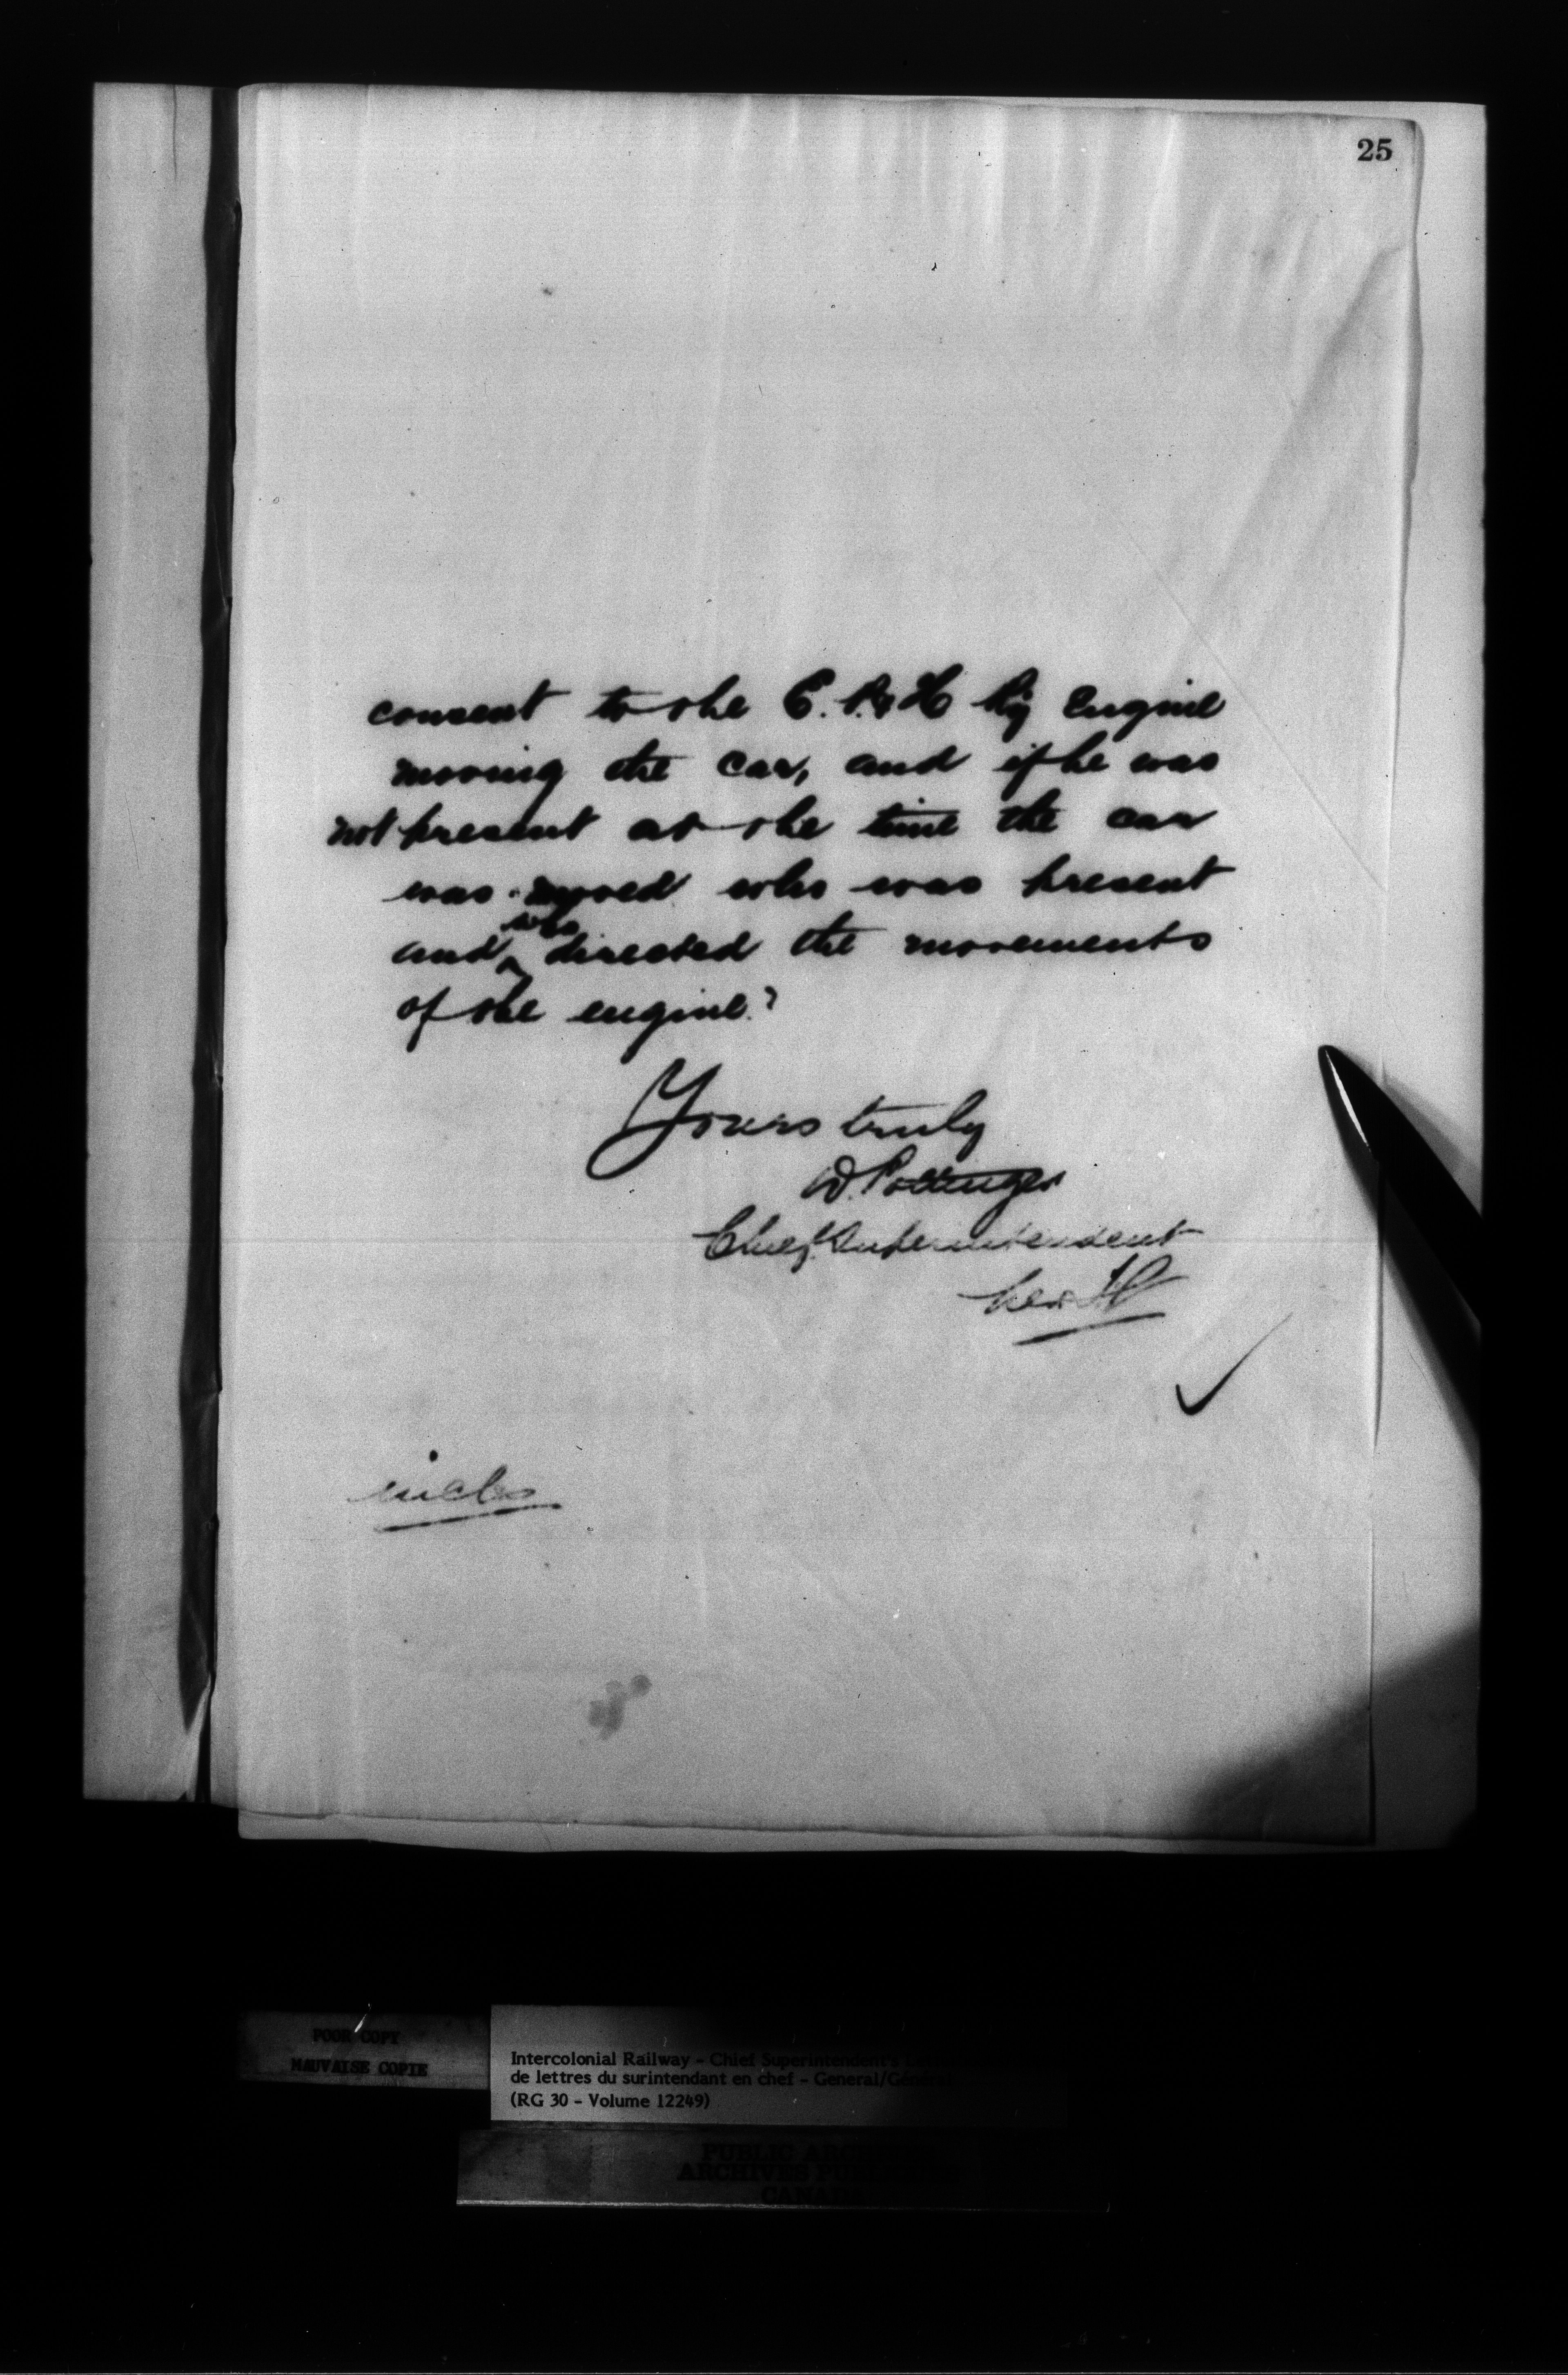 25
consent to the E. P. & H Ry Engine
moving the car, and if he was
not present at the time the car
was moved who was present
and who directed the movements
of the engine?
Yours truly
D. Pottinger
Chief Superintendent
per
incls
POOR COPY
MAUVAISE COPIE
Intercolonial Railway - Chief Superintendent's
de lettres du surintendant en chef - General/Général
(RG 30 - Volume 12249)
PUBLIC ARCHIVES
ARCHIVES PUBLIQUES
CANADA